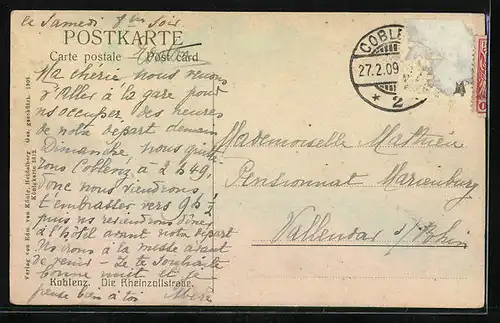 Ce Samedi soir
POSTKARTE
Carte postale Post card
Ma chérie, nous venons
d'Aller à la gare pour
ns occuper des heures
de notre départ demain
Dimanche, nous quittons
Coblenz à 2 h 49,
donc nous viendrons
t'embrasser vers 9 h ½
puis ns reviendrons
à l'hôtel avant notre départ
Ns irons à la messe avant
de venir - Je te souhaite
bonne nuit et je
pense bien à toi
Koblenz. Die Rheinzollstraße.
Verlag von Edm. von König, Heidelberg Ges. geschützt. 1906.
COBLE
27.2.09
* 2
Mademoiselle Mathieu
Pensionnat Marienburg
Vallendar s/Rhin